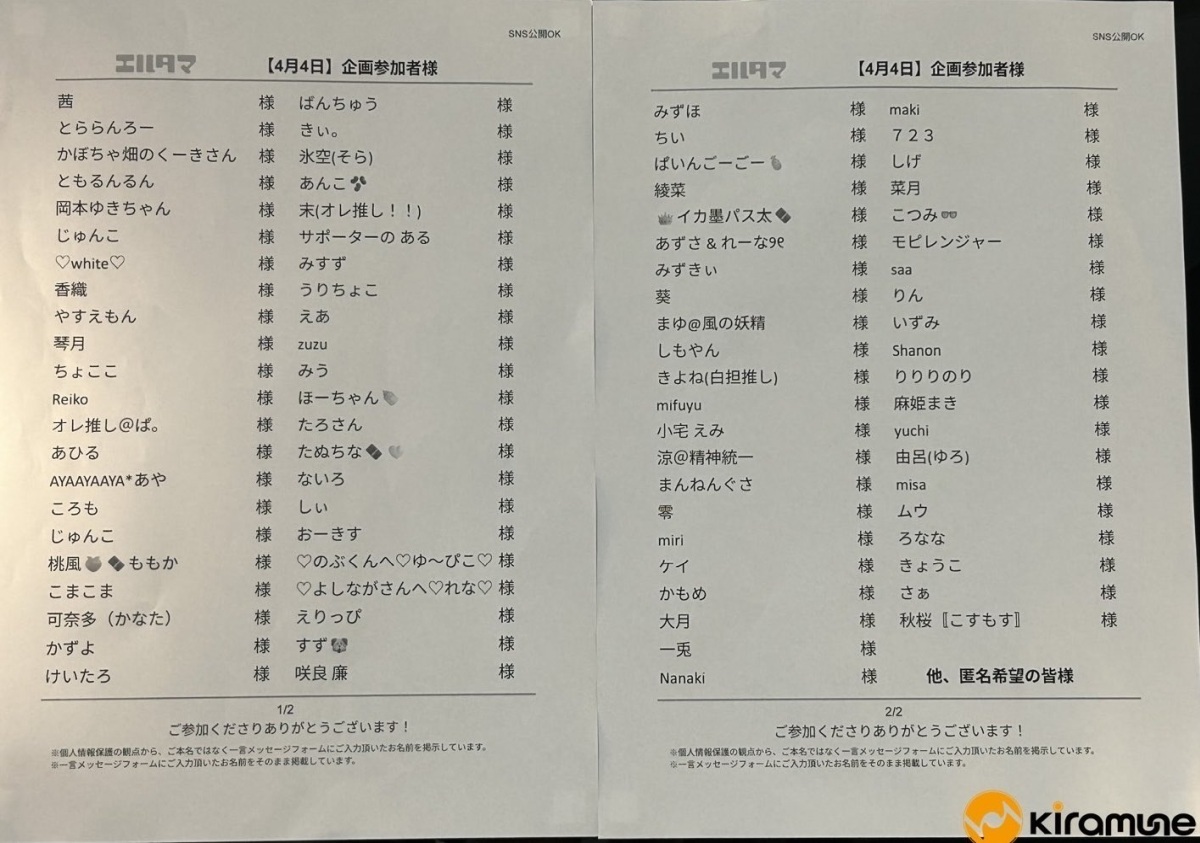 SNS公開OK
エルタマ 【4月4日】企画参加者様
茜 様 ばんちゅう 様
とららんろー 様 きぃ。 様
かぼちゃ畑のくーきさん 様 氷空(そら) 様
ともるんるん 様 あんこ🫘 様
岡本ゆきちゃん 様 末(オレ推し！！) 様
じゅんこ 様 サポーターの ある 様
♡white♡ 様 みすず 様
香織 様 うりちょこ 様
やすえもん 様 えあ 様
琴月 様 zuzu 様
ちょここ 様 みう 様
Reiko 様 ほーちゃん 様
オレ推し＠ぱ。 様 たろさん 様
あひる 様 たぬちな🍫🤍 様
AYAAYAAYA*あや 様 ないろ 様
ころも 様 しぃ 様
じゅんこ 様 おーきす 様
桃風🍑🍫ももか 様 ♡のぶくんへ♡ゆ〜ぴこ♡ 様
こまこま 様 ♡よしながさんへ♡れな♡ 様
可奈多（かなた） 様 えりっぴ 様
かずよ 様 すず🐶 様
けいたろ 様 咲良 廉 様
1/2
ご参加くださりありがとうございます！
※個人情報保護の観点から、ご本名ではなく一言メッセージフォームにご入力頂いたお名前を掲示しています。
※一言メッセージフォームにご入力頂いたお名前をそのまま掲載しています。
SNS公開OK
エルタマ 【4月4日】企画参加者様
みずほ 様 maki 様
ちい 様 ７２３ 様
ぱいんごーごー🍍 様 しげ 様
綾菜 様 菜月 様
👑イカ墨パス太🍫 様 こつみ🕶 様
あずさ＆れーな୨୧ 様 モピレンジャー 様
みずきぃ 様 saa 様
葵 様 りん 様
まゆ@風の妖精 様 いずみ 様
しもやん 様 Shanon 様
きよね(白担推し) 様 りりりのり 様
mifuyu 様 麻姫まき 様
小宅 えみ 様 yuchi 様
涼＠精神統一 様 由呂(ゆろ) 様
まんねんぐさ 様 misa 様
零 様 ムウ 様
miri 様 ろなな 様
ケイ 様 きょうこ 様
かもめ 様 さぁ 様
大月 様 秋桜〖こすもす〗 様
一兎 様
Nanaki 様 他、匿名希望の皆様
2/2
ご参加くださりありがとうございます！
※個人情報保護の観点から、ご本名ではなく一言メッセージフォームにご入力頂いたお名前を掲示しています。
※一言メッセージフォームにご入力頂いたお名前をそのまま掲載しています。
kiramune